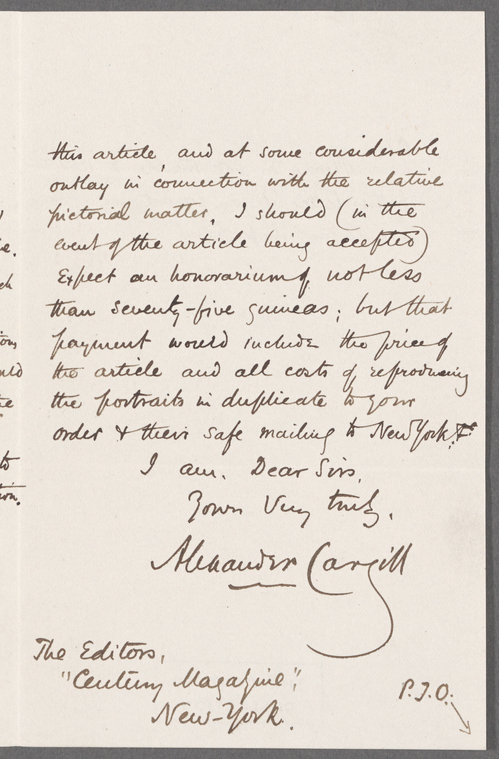 this article, and at some considerable
outlay in connection with the relative
pictorial matter, I should (in the
event of the article being accepted)
Expect an honorarium of not less
than seventy-five guineas; but that
payment would include the price of
the article and all costs of reproducing
the portraits in duplicate to your
order & their safe mailing to New York.
I am. Dear Sirs,
Yours Very truly,
Alexander Cargill
The Editors,
"Century Magazine",
New-York.
P.T.O.